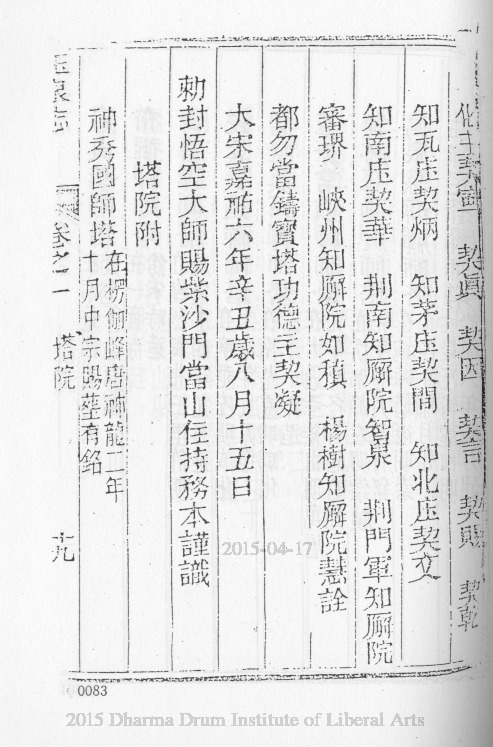 化主契寧　契眞　契因　契言　契賜　契乾
知瓦庄契炳　知茅庄契間　知北庄契文
知南庄契華　荆南知廨院智杲　荆門軍知廨院
審琾　峽州知廨院如稹　楊樹知廨院慧詮
都勿當鑄寶塔功德主契凝
大宋嘉祐六年辛丑歲八月十五日
勑封悟空大師賜紫沙門當山住持務本謹識
塔院附
神秀國師塔 在楞伽峰唐神龍二年
十月中宗賜塟有銘
玉泉志 卷之一 塔院 十九
2015-04-17
0083
2015 Dharma Drum Institute of Liberal Arts